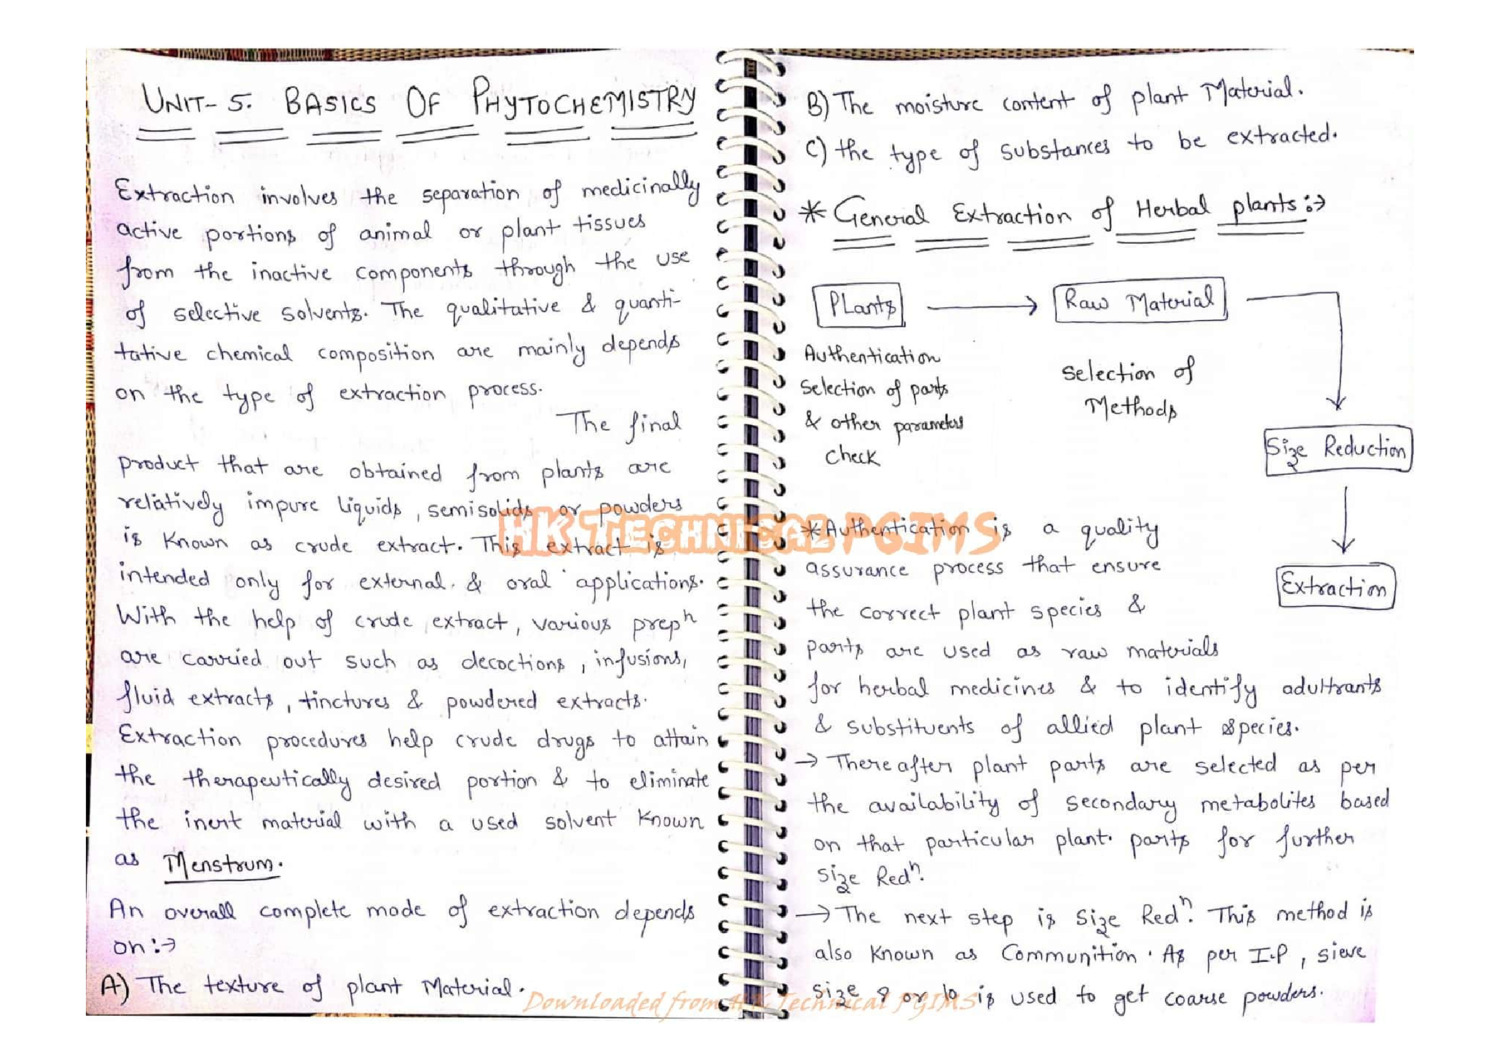 UNIT-5. BASICS OF PHYTOCHEMISTRY
Extraction involves the separation of medicinally
active portions of animal or plant tissues
from the inactive components through the use
of selective solvents. The qualitative & quanti-
tative chemical composition are mainly depends
on the type of extraction process.
The final
product that are obtained from plants are
relatively impure liquids, semisolids or powders
is Known as crude extract. This extract is
intended only for external & oral applications.
With the help of crude extract, various prepⁿ
are carried out such as decoctions, infusions,
fluid extracts, tinctures & powdered extracts.
Extraction procedures help crude drugs to attain
the therapeutically desired portion & to eliminate
the inert material with a used solvent Known
as Menstrum.
An overall complete mode of extraction depends
on:→
A) The texture of plant Material.
B) The moisture content of plant Material.
C) the type of substances to be extracted.
* General Extraction of Herbal plants:→
PLants → Raw Material
Authentication
Selection of parts
& other parameters
check
Selection of
Methods
Size Reduction
Extraction
*Authentication is a quality
assurance process that ensure
the correct plant species &
parts are used as raw materials
for herbal medicines & to identify adultrants
& substituents of allied plant species.
→ Thereafter plant parts are selected as per
the availability of secondary metabolites based
on that particular plant. parts for further
Size Redⁿ.
→ The next step is Size Redⁿ. This method is
also Known as Communition. As per I.P, sieve
size or 10 is used to get coarse powders.
HK TECHNICAL PGIMS
Downloaded from HK Technical PGIMS